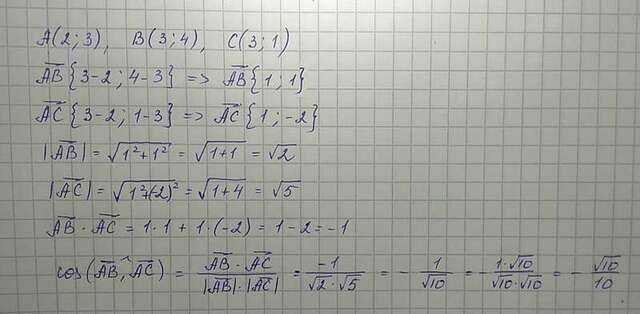 A(2;3), B(3;4), C(3;1)
A̅B̅{3-2; 4-3} => A̅B̅{1; 1}
A̅C̅{3-2; 1-3} => A̅C̅{1; -2}
|A̅B̅| = √(1²+1²) = √(1+1) = √2
|A̅C̅| = √(1²+(-2)²) = √(1+4) = √5
A̅B̅ · A̅C̅ = 1·1 + 1·(-2) = 1-2 = -1
cos(A̅B̅,^A̅C̅) = (A̅B̅ · A̅C̅)/(|A̅B̅|·|A̅C̅|) = -1/(√2·√5) = -1/√10 = -(1·√10)/(√10·√10) = -√10/10